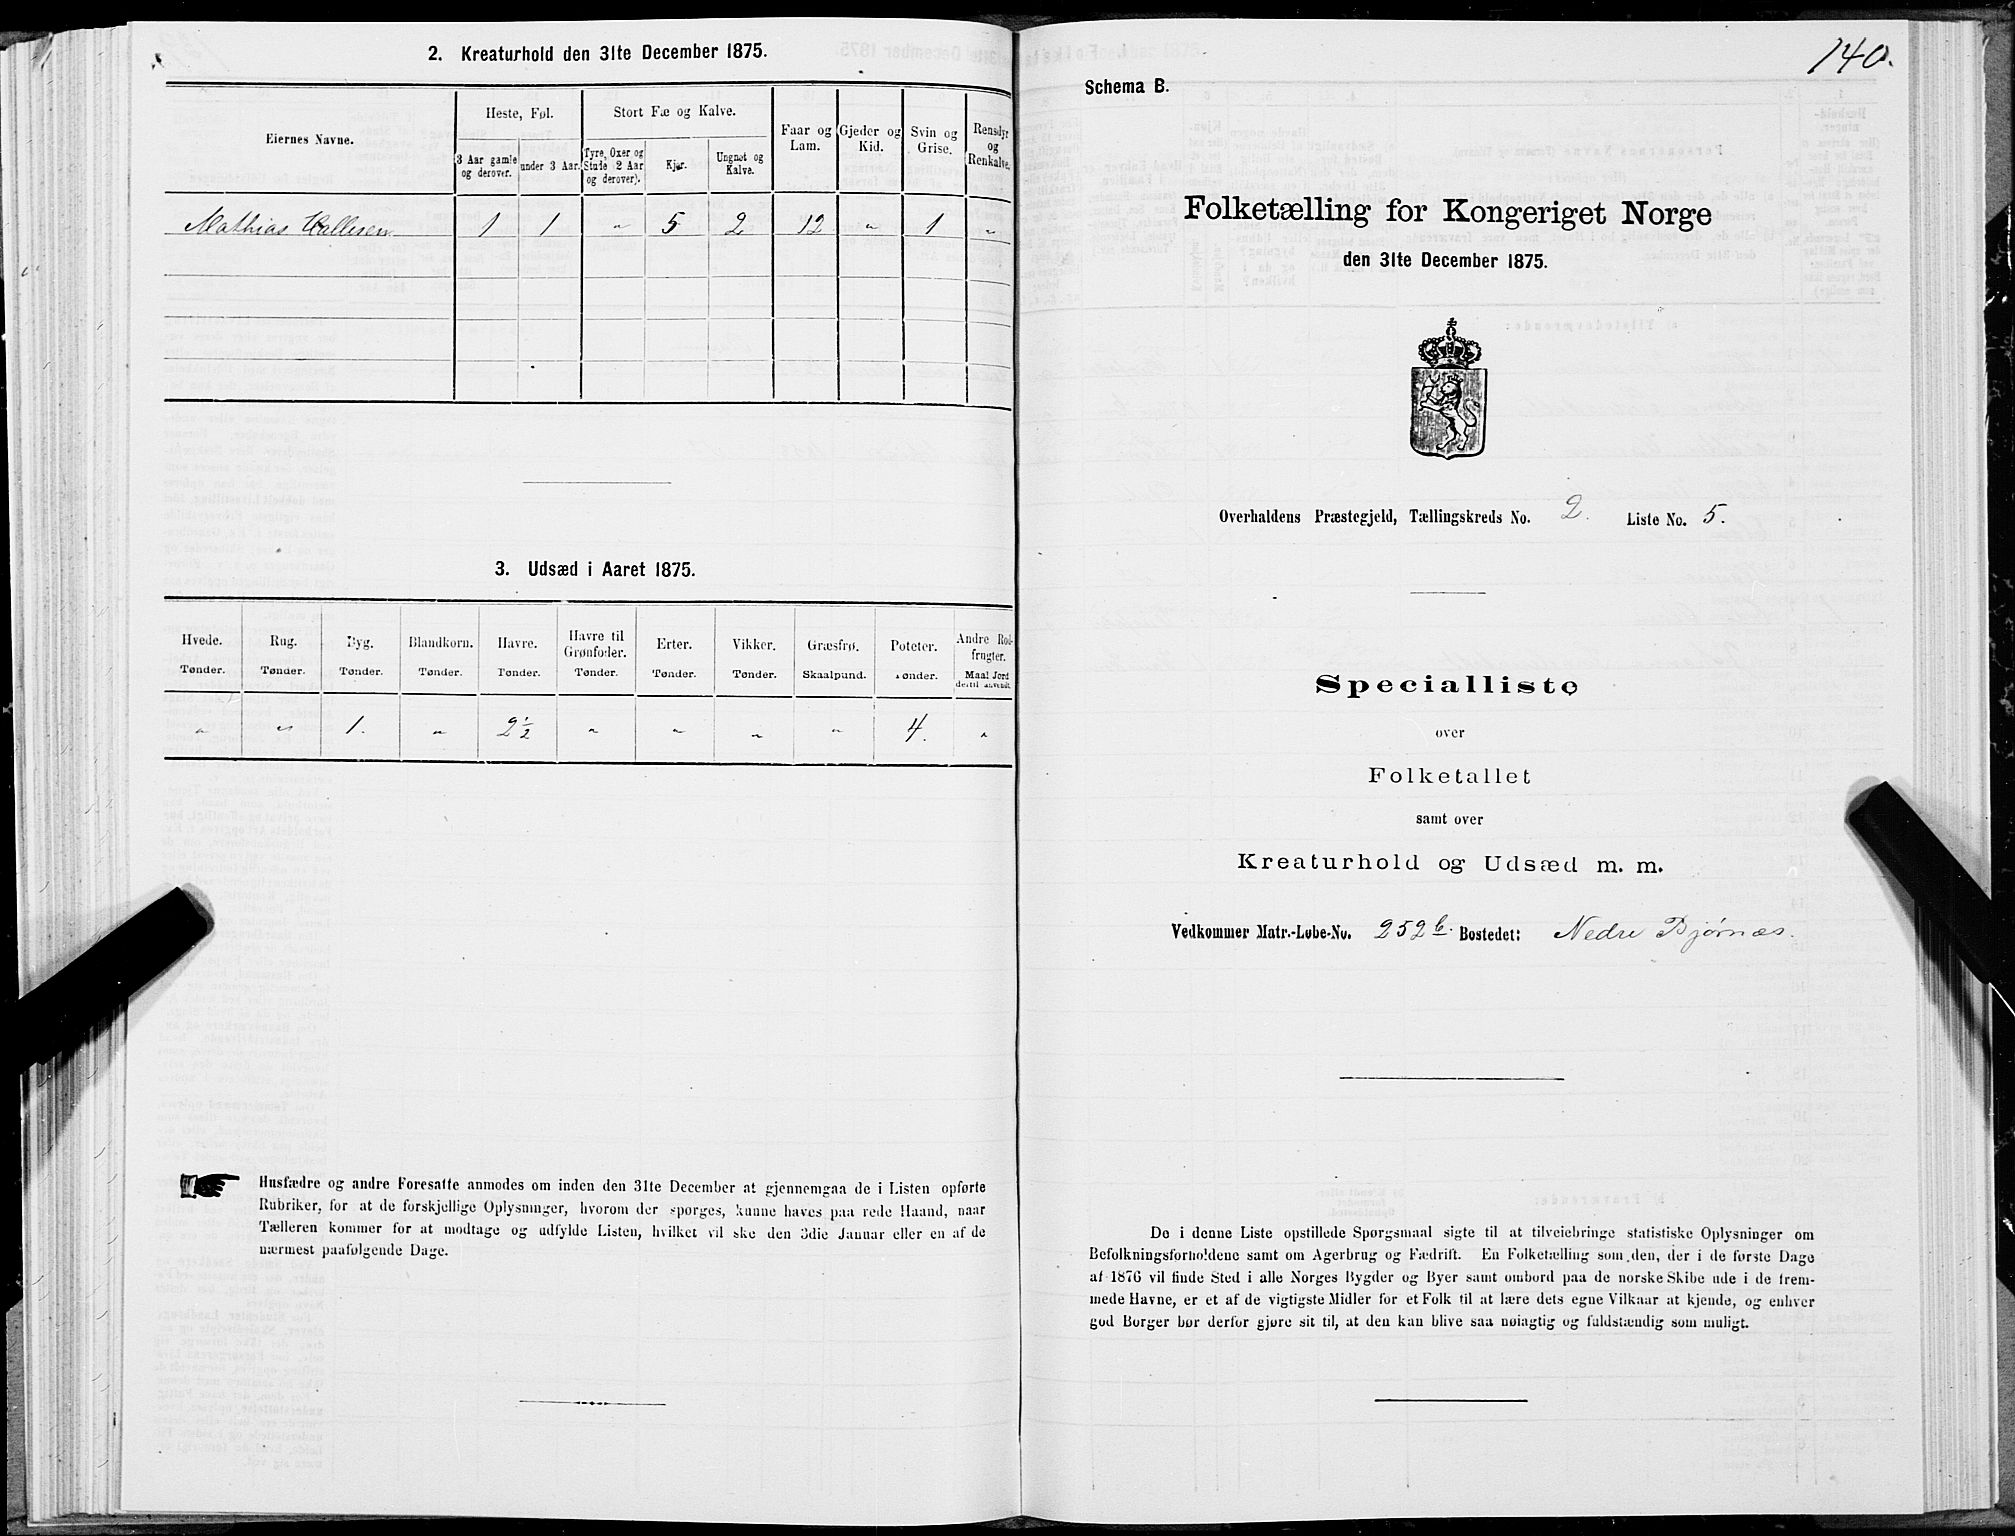 2. Kreaturhold den 31te December 1875.
Eiernes Navne.
Heste, Føl.
Stort Fæ og Kalve.
Faar og Lam.
Gjeder og Kid.
Svin og Grise.
Rensdyr og Renkalve.
3 Aar gamle og derover.
under 3 Aar.
Tyre, Oxer og Stude 2 Aar og derover).
Kjør.
Ungnøt og Kalve.
Mathias Hallesen 1 1 " 5 2 12 " 1 "
3. Udsæd i Aaret 1875.
Hvede. Rug. Byg. Blandkorn. Havre. Havre til Grønfoder. Erter. Vikker. Græsfrø. Poteter. Andre Rodfrugter.
Tønder. Tønder. Tønder. Tønder. Tønder. Tønder. Tønder. Tønder. Skaalpund. Tønder. Maal Jord dertil anvendt.
" " 1. " 2½ " " " " 4. "
Husfædre og andre Foresatte anmodes om inden den 31te December at gjennemgaa de i Listen opførte
Rubriker, for at de forskjellige Oplysninger, hvorom der spørges, kunne haves paa rede Haand, naar
Tælleren kommer for at modtage og udfylde Listen, hvilket vil ske den 3die Januar eller en af de
nærmest paafølgende Dage.
140.
Schema B.
Folketælling for Kongeriget Norge
den 31te December 1875.
Overhaldens Præstegjeld, Tællingskreds No. 2. Liste No. 5.
Specialliste
over
Folketallet
samt over
Kreaturhold og Udsæd m. m.
Vedkommer Matr.-Løbe-No. 252b. Bostedet: Nedre Bjørnæs.
De i denne Liste opstillede Spørgsmaal sigte til at tilveiebringe statistiske Oplysninger om
Befolkningsforholdene samt om Agerbrug og Fædrift. En Folketælling som den, der i de første Dage
af 1876 vil finde Sted i alle Norges Bygder og Byer samt ombord paa de norske Skibe ude i de frem-
mede Havne, er et af de vigtigste Midler for et Folk til at lære dets egne Vilkaar at kjende, og enhver
god Borger bør derfor gjøre sit til, at den kan blive saa nøiagtig og fuldstændig som muligt.